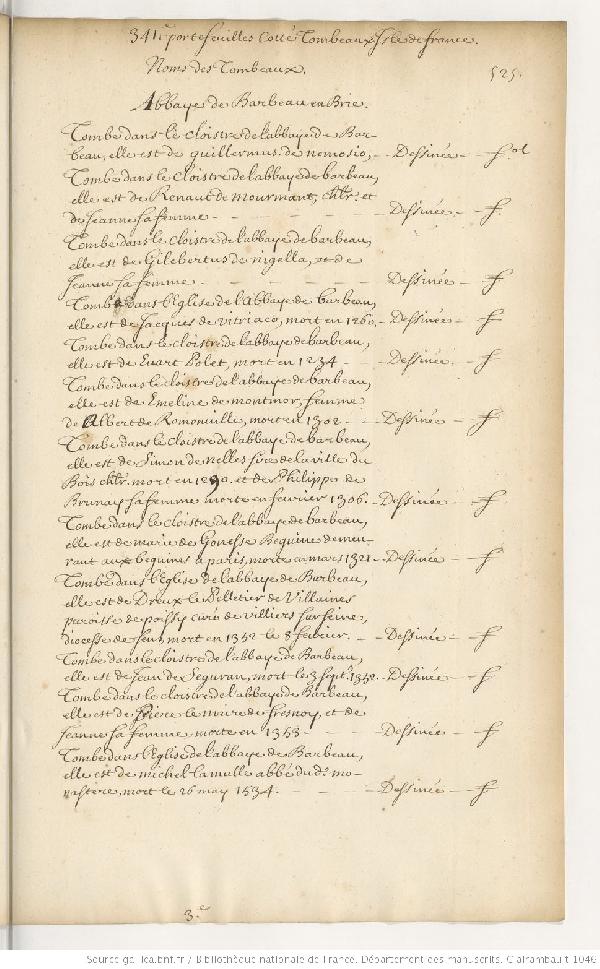 341e portefeuilles Cotté Tombeaux Isle de france.
Noms des Tombeaux.
525.
Abbaye de Barbeau en Brie.
Tombe dans le cloistre de l'abbaye de Bar-
beau, elle est de guillermus de nemosio, - Dessinée - f.ol
Tombe dans le Cloistre de l'abbaye de barbeau,
elle est de Renaut de Mourmant, chlr. et
de Jeanne sa femme - - - - - Dessinée - f.
Tombe dans le Cloistre de l'abbaye de barbeau,
elle est de Gilebertus de nigella, et de
Jeanne sa femme - - - - - Dessinée - f.
Tombe dans l'Eglise de l'abbaye de barbeau,
elle est de Jacques de vitriaco, mort en 1260. - Dessinée - f.
Tombe dans le Cloistre de l'abbaye de barbeau,
elle est de Evart Polet, mort en 1234 - - Dessinée - f.
Tombe dans le cloistre de l'abbaye de barbeau,
elle est de Emeline de montmor, femme
de Albert de Romonuille, morte en 1302 - - Dessinée - f.
Tombe dans le Cloistre de l'abbaye de barbeau,
elle est de Simon de nelles sire de la ville du
Bois chlr. mort en 1290. et de Philippe de
Brunay sa femme morte en fevrier 1306. - Dessinée - f.
Tombe dans le Cloistre de l'abbaye de barbeau,
elle est de marie de Gonesse Beguine demeu-
rant aux beguines a paris, morte en mars 1321 - Dessinée - f.
Tombe dans l'Eglise de l'abbaye de Barbeau,
elle est de Dreux le Pelletier de Villaines
paroisse de poissy curé de Villiers sur seine,
diocesse de sens, mort en 1352 le 8 fevrier. - Dessinée - f.
Tombe dans le cloistre de l'abbaye de Barbeau,
elle est de Jean de Seguran, mort le 3 septr. 1352. - Dessinée - f.
Tombe dans le cloistre de l'abbaye de Barbeau,
elle est de Pierre le mire de fresnoy, et de
Jeanne sa femme morte en 1353 - - - Dessinée - f.
Tombe dans l'Eglise de l'abbaye de Barbeau,
elle est de michel lamulle abbé du d. mo-
nastere, mort le 26 may 1534. - - - Dessinée - f.
3.e
Source gallica.bnf.fr / Bibliothèque nationale de France. Département des manuscrits. Clairambault 1046